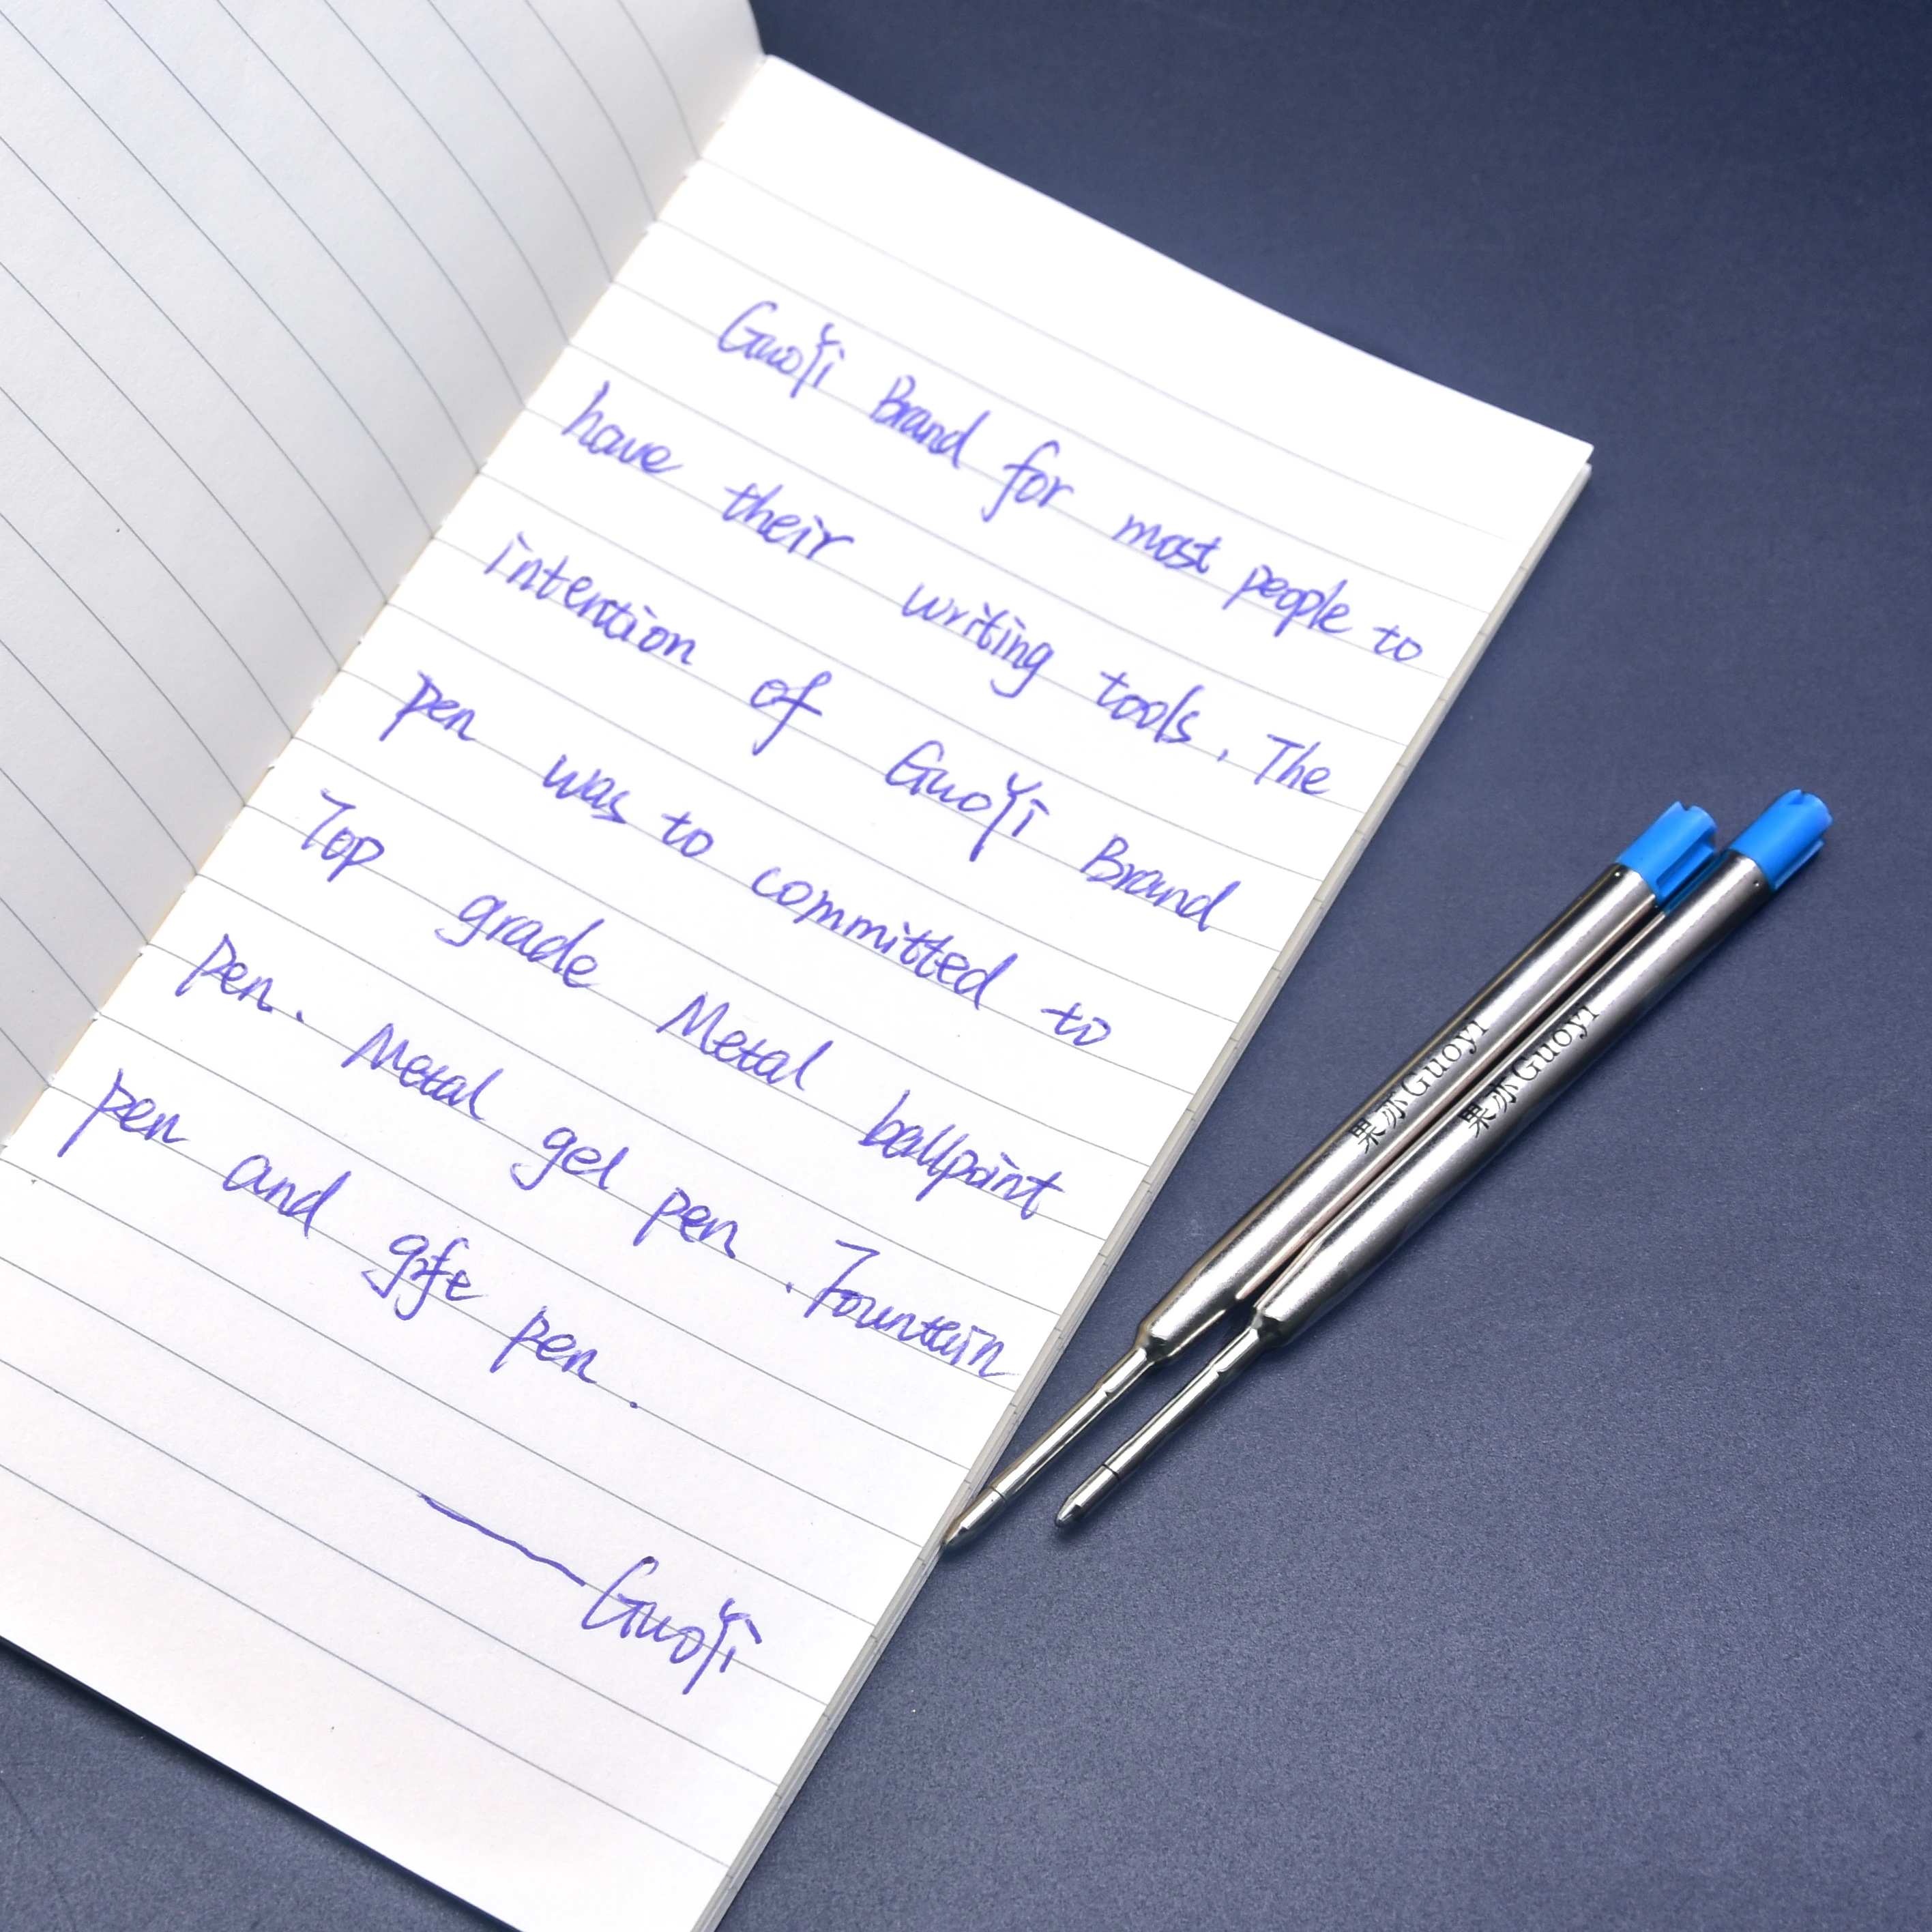 GuoYi Brand for most people to
have their writing tools. The
intention of GuoYi Brand
pen was to committed to
Top grade Metal ballpoint
pen. Metal gel pen. Fountain
pen and gift pen.
—GuoYi
果亦Guoyi
果亦Guoyi